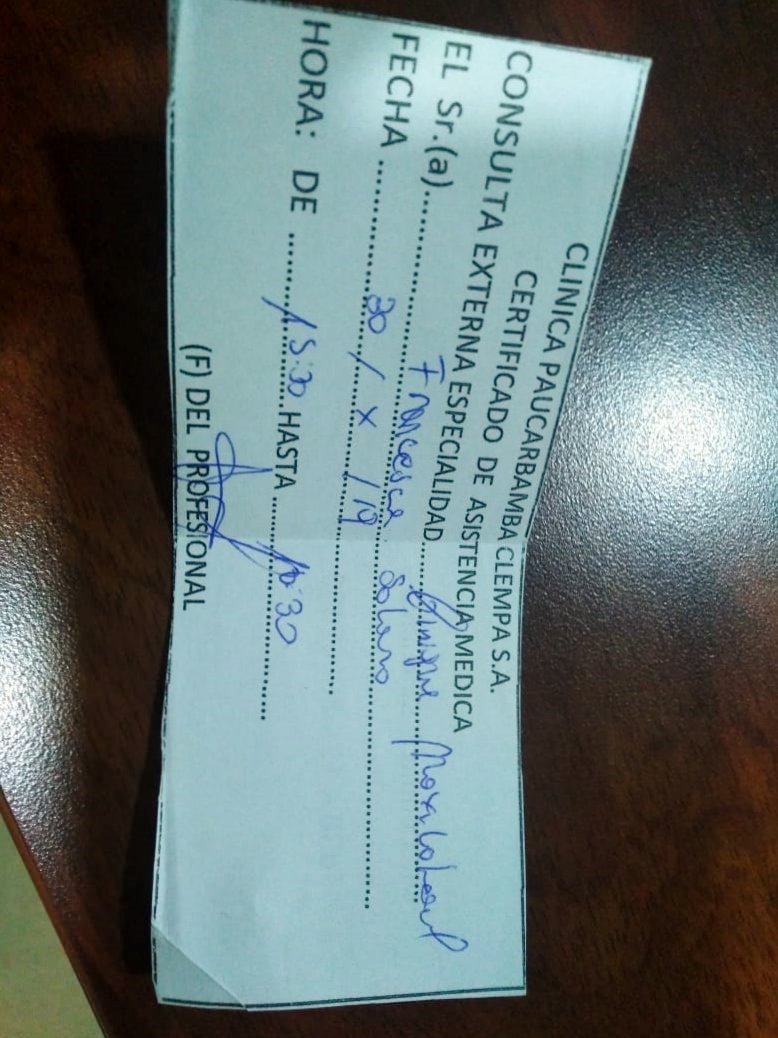 CLINICA PAUCARBAMBA CLEMPA S.A.
CERTIFICADO DE ASISTENCIA MEDICA
CONSULTA EXTERNA ESPECIALIDAD..........
EL Sr.(a)........ Francesca Solano
FECHA ........ 30 / X / 19 ........
HORA: DE ........ 15:30 HASTA ........ :30 ........
(F) DEL PROFESIONAL